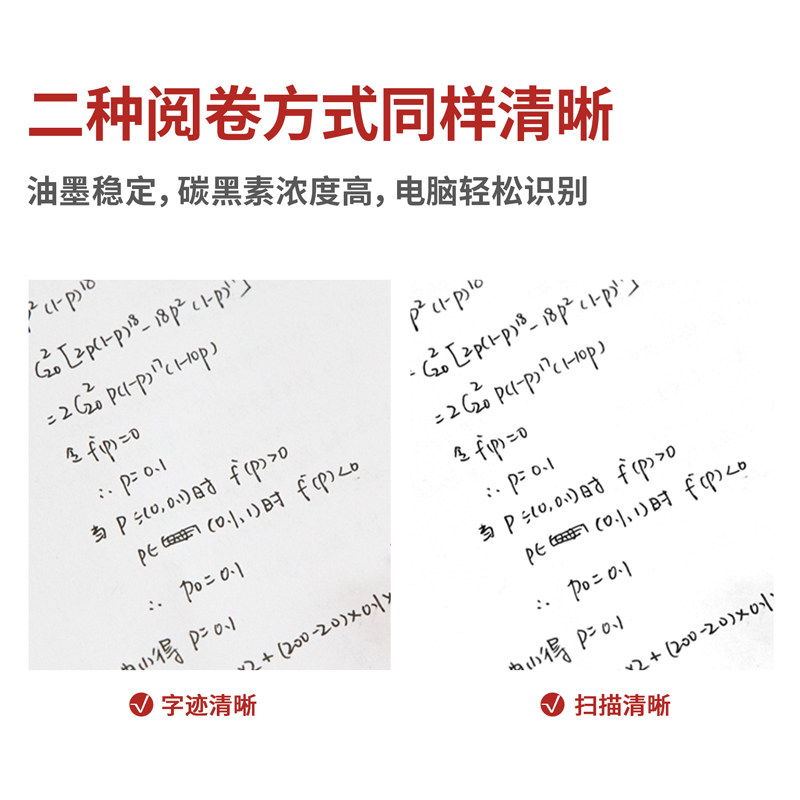 二种阅卷方式同样清晰
油墨稳定，碳黑素浓度高，电脑轻松识别
p²(1-p)¹⁸
C²₂₀[2p(1-p)¹⁸-18p²(1-p)¹⁷]
=2C²₂₀p(1-p)¹⁷(1-10p)
令f'(p)=0
∴p=0.1
当P=(0,0.1)时 f'(p)>0
p∈(0.1,1)时 f'(p)<0
∴ p₀=0.1
由(1)得 p=0.1
×2+(200-20)×0.1×
p²(1-p)¹⁸
=C²₂₀[2p(1-p)¹⁸-18p²(1-p)¹⁷]
=2C²₂₀p(1-p)¹⁷(1-10p)
令f'(p)=0
∴p=0.1
当P=(0,0.1)时 f'(p)>0
p∈(0.1,1)时 f'(p)<0
∴ p₀=0.1
由(1)得 p=0.1
×2+(200-20)×0.1
字迹清晰
扫描清晰